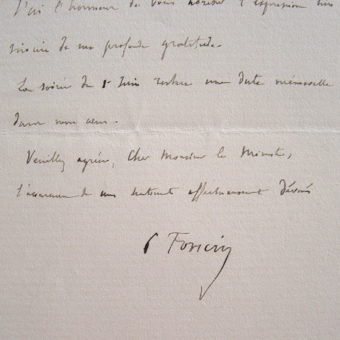 J'ai l'honneur de vous adresser l'expression sin
cère de ma profonde gratitude.
La soirée de 1er Juin restera une date
dans mon cœur.
Veuillez agréer, Cher Monsieur le Ministre,
l'assurance de mes sentiments affectueusement dévoués